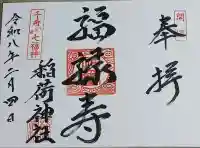 奉拝
福禄寿
稲荷神社
千寿七福神
令和八年二月四日